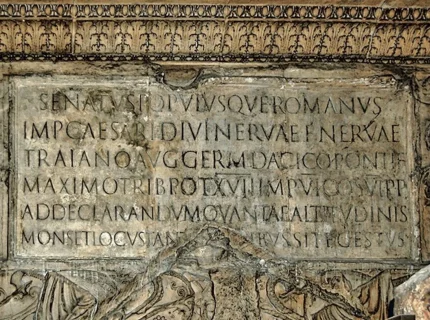 SENATVSPOPVLVSQVEROMANVS
IMPCAESARIDIVINERVAEFNERVAE
TRAIANOAVGGERMDACICOPONTIF
MAXIMOTRIBPOTXVIIIMPVICOSVIPP
ADDECLARANDVMQVANTAEALTITVDINIS
MONSETLOCVSTANT IBVSSITEGESTVS